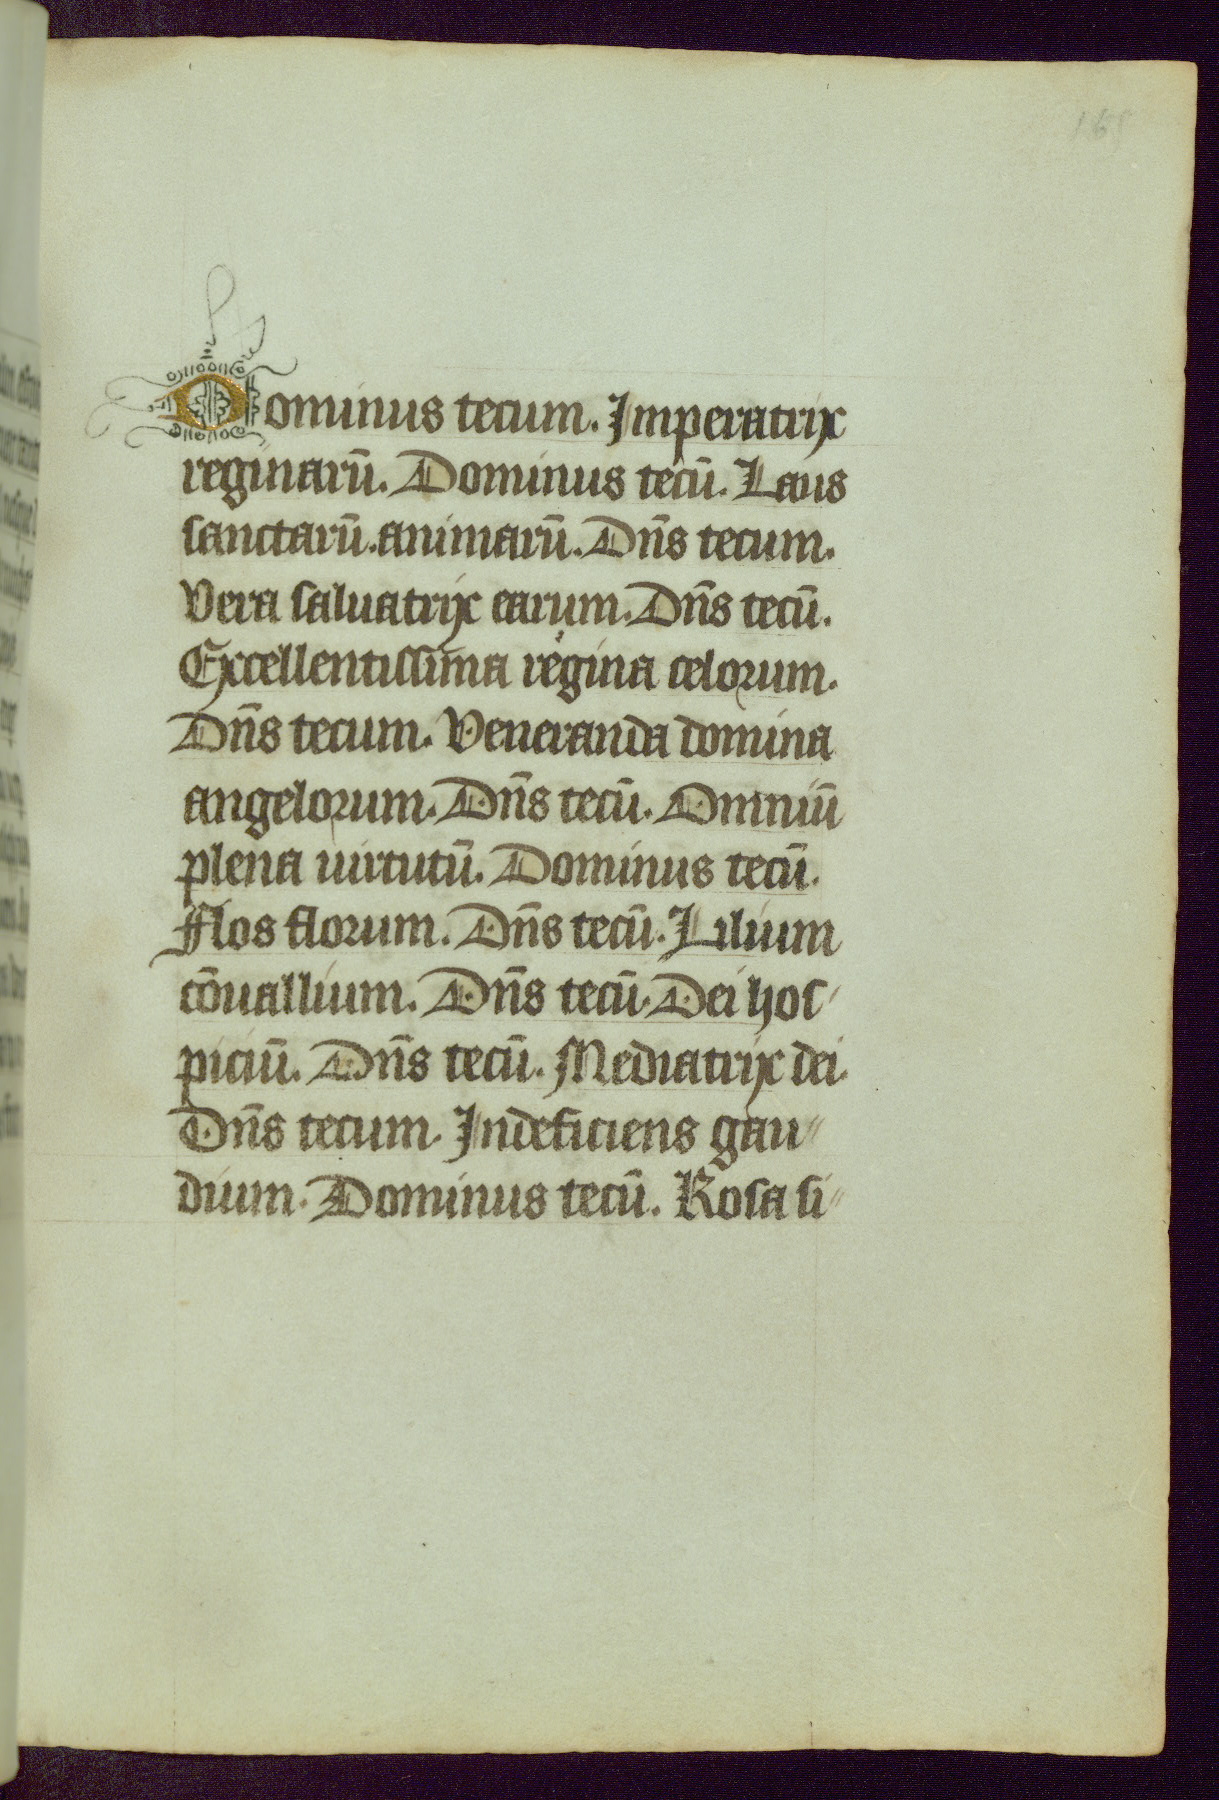 165
Dominus tecum. Imperatrix
reginarū. Dominus tecū. Laus
sanctarū. animarū. Dn̄s tecum.
Vera saluatrix earum. Dn̄s tecū.
Excellentissima regina celorum.
Dn̄s tecum. Veneranda domina
angelorum. Dn̄s tecū. Omniū
plena uirtutū. Dominus tecū.
Flos florum. Dn̄s tecū. Lilium
cōuallium. Dn̄s tecū. Dei hos/
piciū. Dn̄s tecū. Mediatrix dei.
Dn̄s tecum. Indeficiens gau//
dium. Dominus tecū. Rosa si//